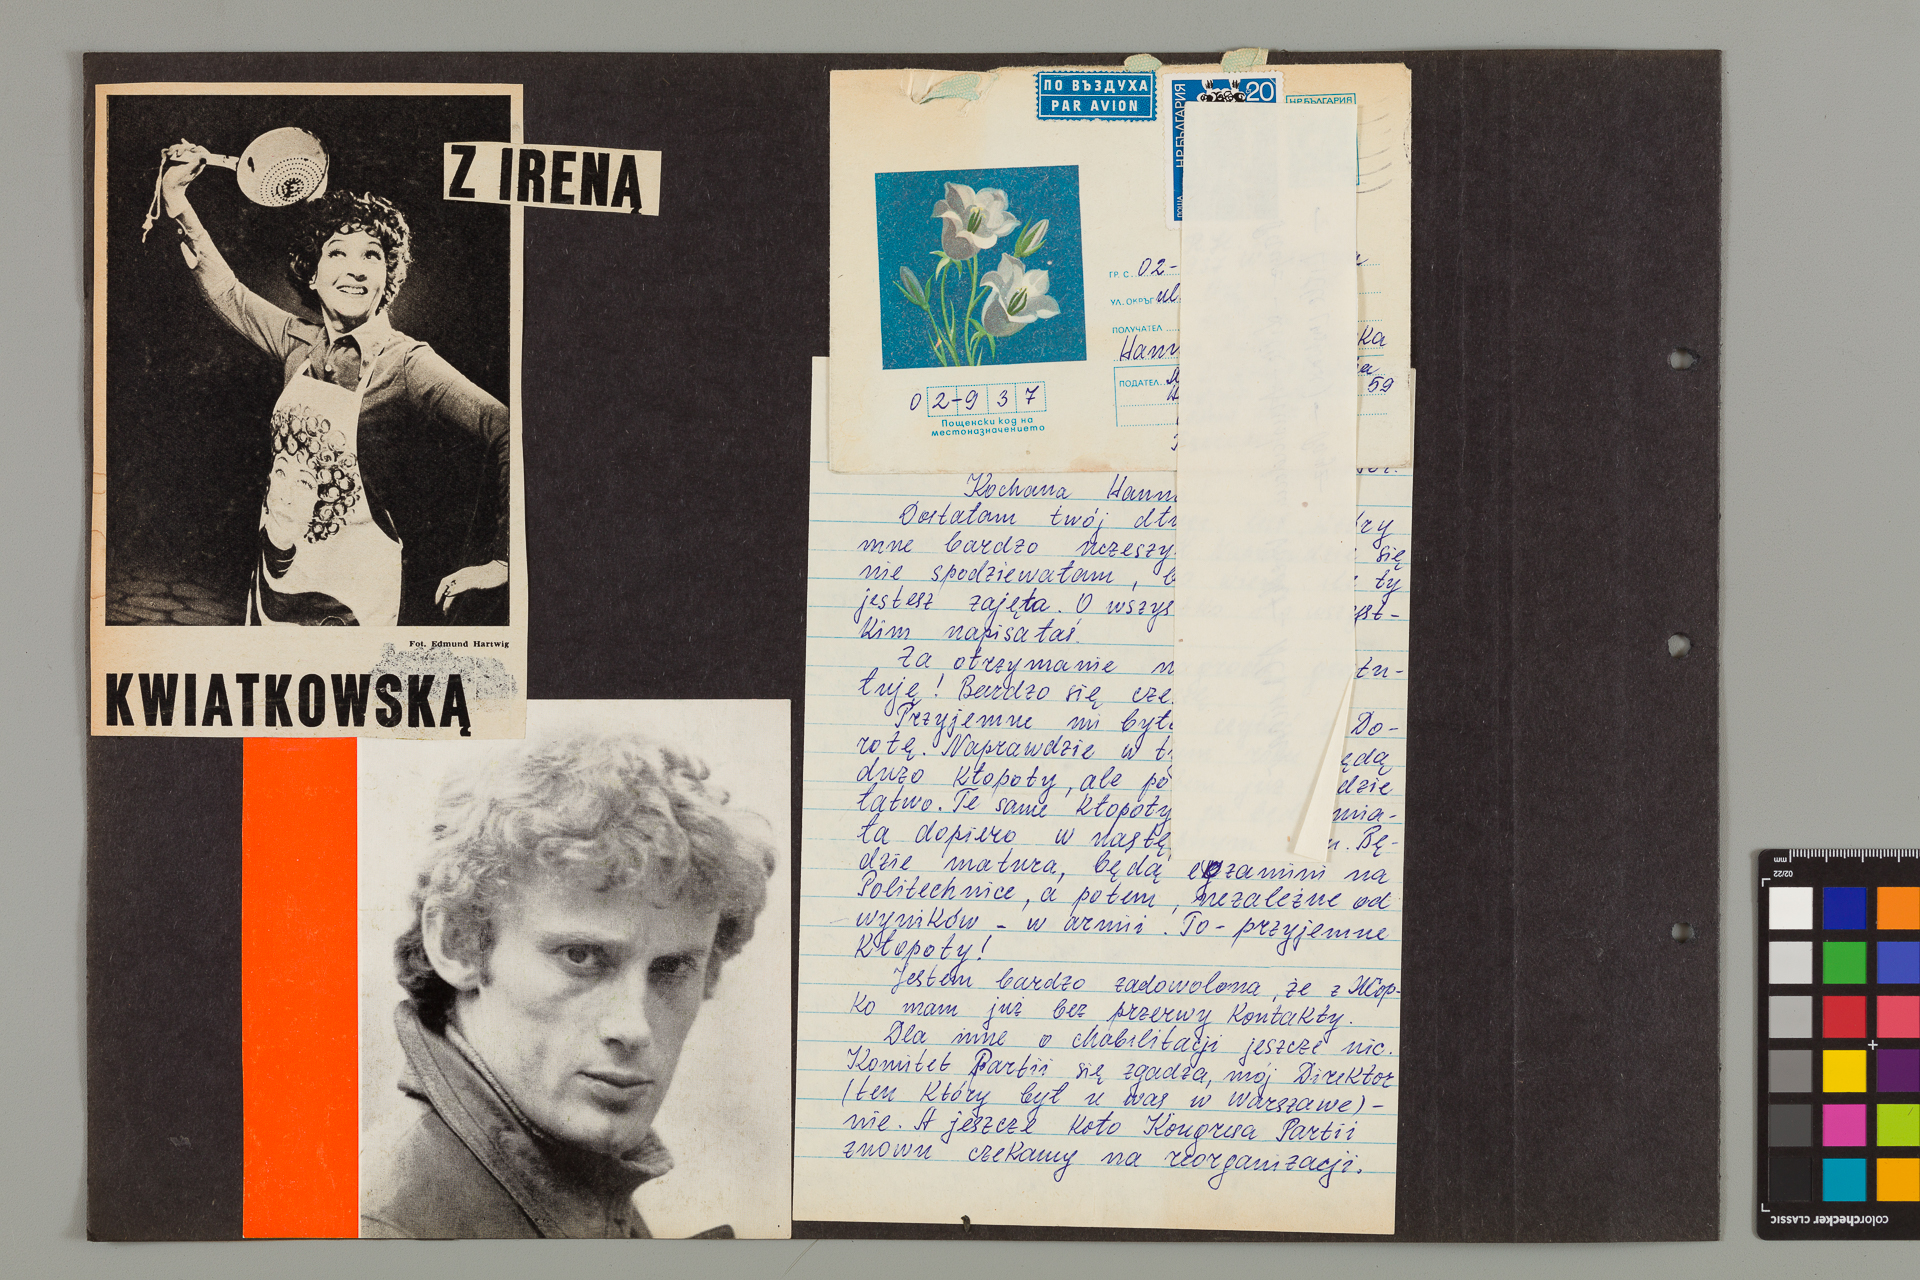 Z IRENĄ
Fot. Edmund Hartwig
KWIATKOWSKĄ
ПО ВЪЗДУХА
PAR AVION
НР БЪЛГАРИЯ
20
ПОЩА
НР БЪЛГАРИЯ
ГР. С. 02-
УЛ. ОКРЪГ ul.
ПОЛУЧАТЕЛ
Hann ka
ПОДАТЕЛ
59
02-937
Пощенски код на
местоназначението
Kochana Hann
Dostałam twój dłu ry
mne bardzo uczeszy się
nie spodziewałam, b ty
jestesz zajęta. O wszys yst-
kim napisałaś.
Za otrzymanie m atu-
tuję! Bardzo się cze
Przyjemne mi było Do-
rotę. Naprawdzie w t ędą
dużo kłopoty, ale po dzie
łatwo. Te same kłopoty mia-
ła dopiero w nastę . Bę-
dzie matura, będą egzamini na
Politechnice, a potem, niezależne od
wyników - w armii. To - przyjemne
kłopoty!
Jestem bardzo zadowolona, że z
ko mam już bez przerwy kontakty.
Dla mne o chabilitacji jeszcze nic.
Komitet Partii się zgadza, mój Direktor
(ten który był u was w Warszawe) -
nie. A jeszcze koło Kongresa Partii
znowu czekamy na reorganizacji.
mm
02/22
colorchecker CLASSIC